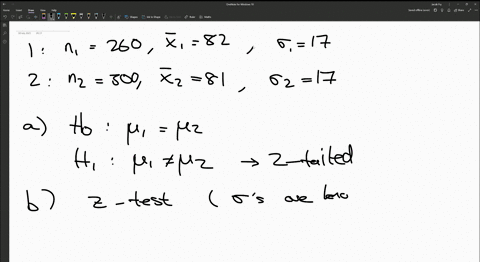 1 : n₁ = 260 , x̄₁ = 82 , σ₁ = 17
2 : n₂ = 300 , x̄₂ = 81 , σ₂ = 17
a) H₀ : μ₁ = μ₂
H₁ : μ₁ ≠ μ₂ → 2-tailed
b) z-test ( σ's are